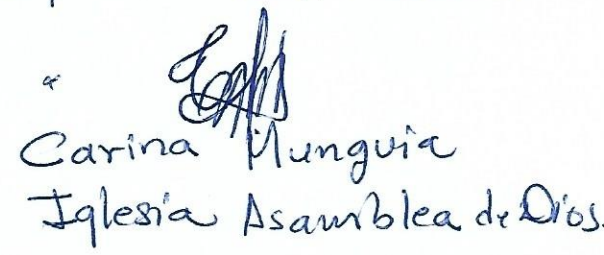 Carina Munguia
Iglesia Asamblea de Dios.